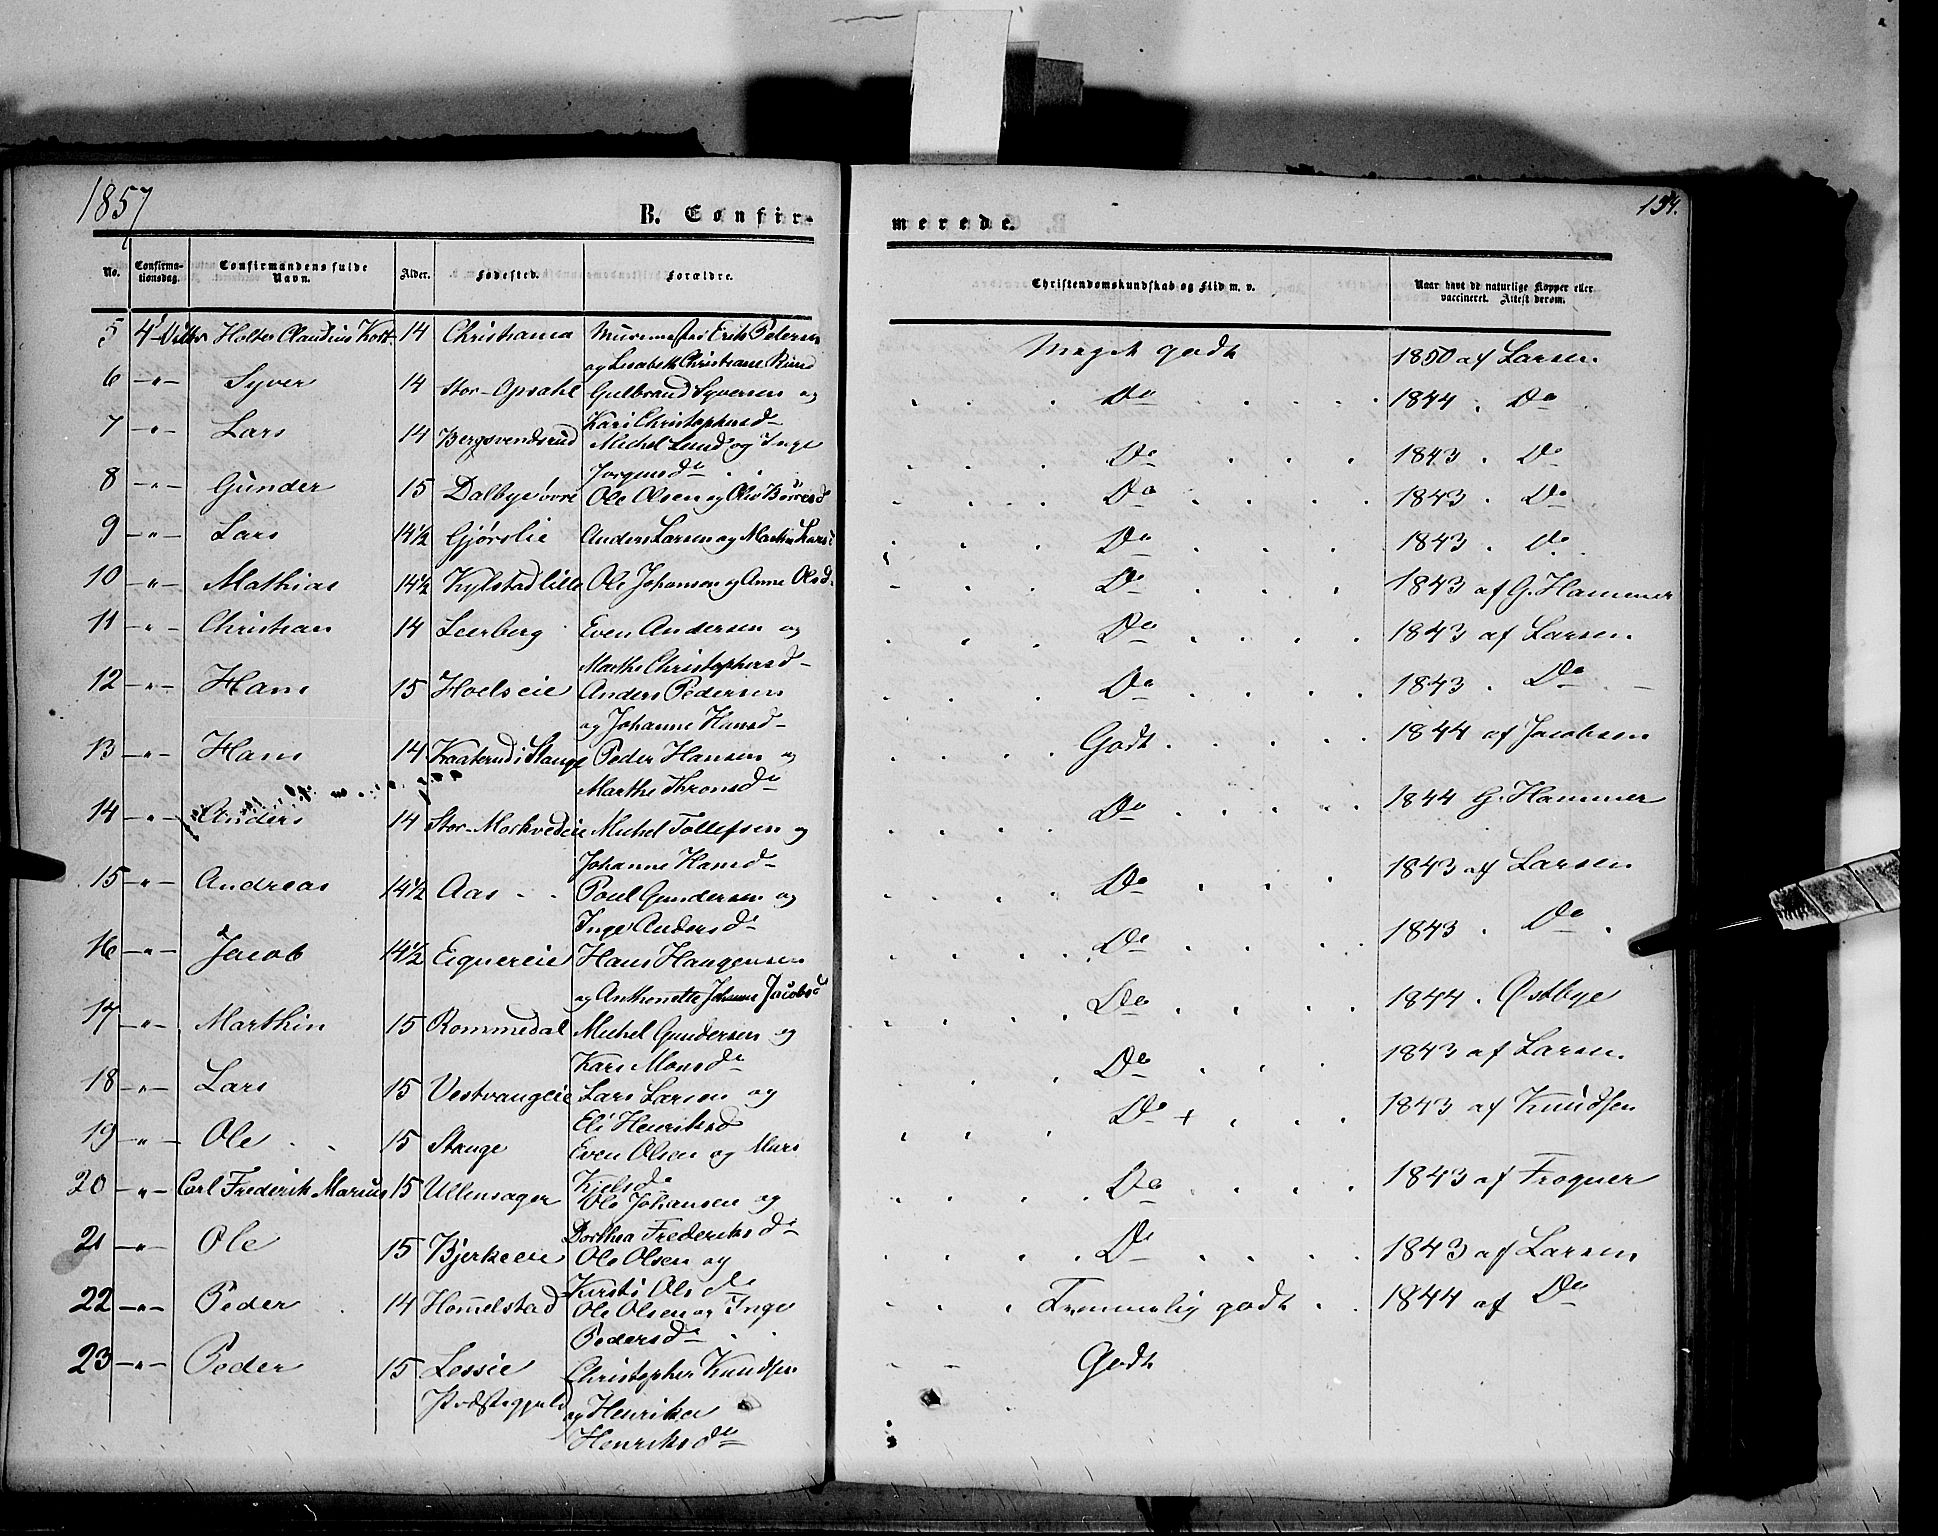 1857
B. Confir-
merede.
134.
No. Confirma-tionsdag. Confirmandens fulde Navn. Alder. Fødested. Forældre. Christendomskundskab og Flid m. v. Naar havt de naturlige Kopper eller vaccineret. Attest derom.
5 Holter Claudius 14 Christiania Erik Pedersen Meget godt 1850 af Larsen
og Lisabeth Christiane
6 -"- Syver 14 Stor-Opsahl Gulbrand Syversen og Do 1844 . Do
Kari Christophersd-
7 -"- Lars 14 Bergsvendsrud Michel Lund og Inge Do 1843 . Do
Jorgensd-
8 -"- Gunder 15 Dalbye øvre Ole Olsen og Do 1843 . Do
9 -"- Lars 14½ Gjørslie Anders Larsen og Do 1843 . Do
10 -"- Mathias 14½ Kylstad lille Ole Johansen og Anne Olsd- Do 1843 af G. Hammer
11 -"- Christian 14 Leerberg Even Andersen og Do 1843 af Larsen.
Marthe Christophersd-
12 -"- Hans 15 Hoelseie Anders Pedersen Do 1843 . Do
og Johanne Hansd-
13 -"- Hans 14 Kaaterud i Stange Peder Hansen og Godt 1844 af Jacobsen
Marthe Thronsd-
14 -"- Anders 14 Stor-Morkvedeie Michel Tollefsen og Do 1844 G. Hammer
Johanne Hansd-
15 -"- Andreas 14½ Aas Poul Gundersen og Do 1843 af Larsen
Inge Andersd-
16 -"- Jacob 14½ Hans Haagensen Do 1843 . Do
og Anthonette Johanne Jacobsd
17 -"- Marthin 15 Rommedal Michel Gundersen og Do 1844 . Østbye
Kari Monsd-
18 -"- Lars 15 Vestvangeie Lars Larsen og Do 1843 af Larsen.
Eli Henriksd
19 -"- Ole 15 Stange Even Olsen og Mari Do + 1843 af Knudsen
Kjelsd-
20 -"- Carl Frederik Marius 15 Ullensager Ole Johansen og Do 1843 af Frogner
Dorthea Frederiksd-
21 -"- Ole 15 Bjerkeeie Ole Olsen og Do 1843 af Larsen
Kirsti Olsd-
22 -"- Peder 14 Hommelstad Ole Olsen og Inge Temmelig godt 1844 af Do
Pedersd-
23 -"- Peder 15 Lessie Christopher Knudsen Godt
Præstegjeld og Henrikke
Henriksd-